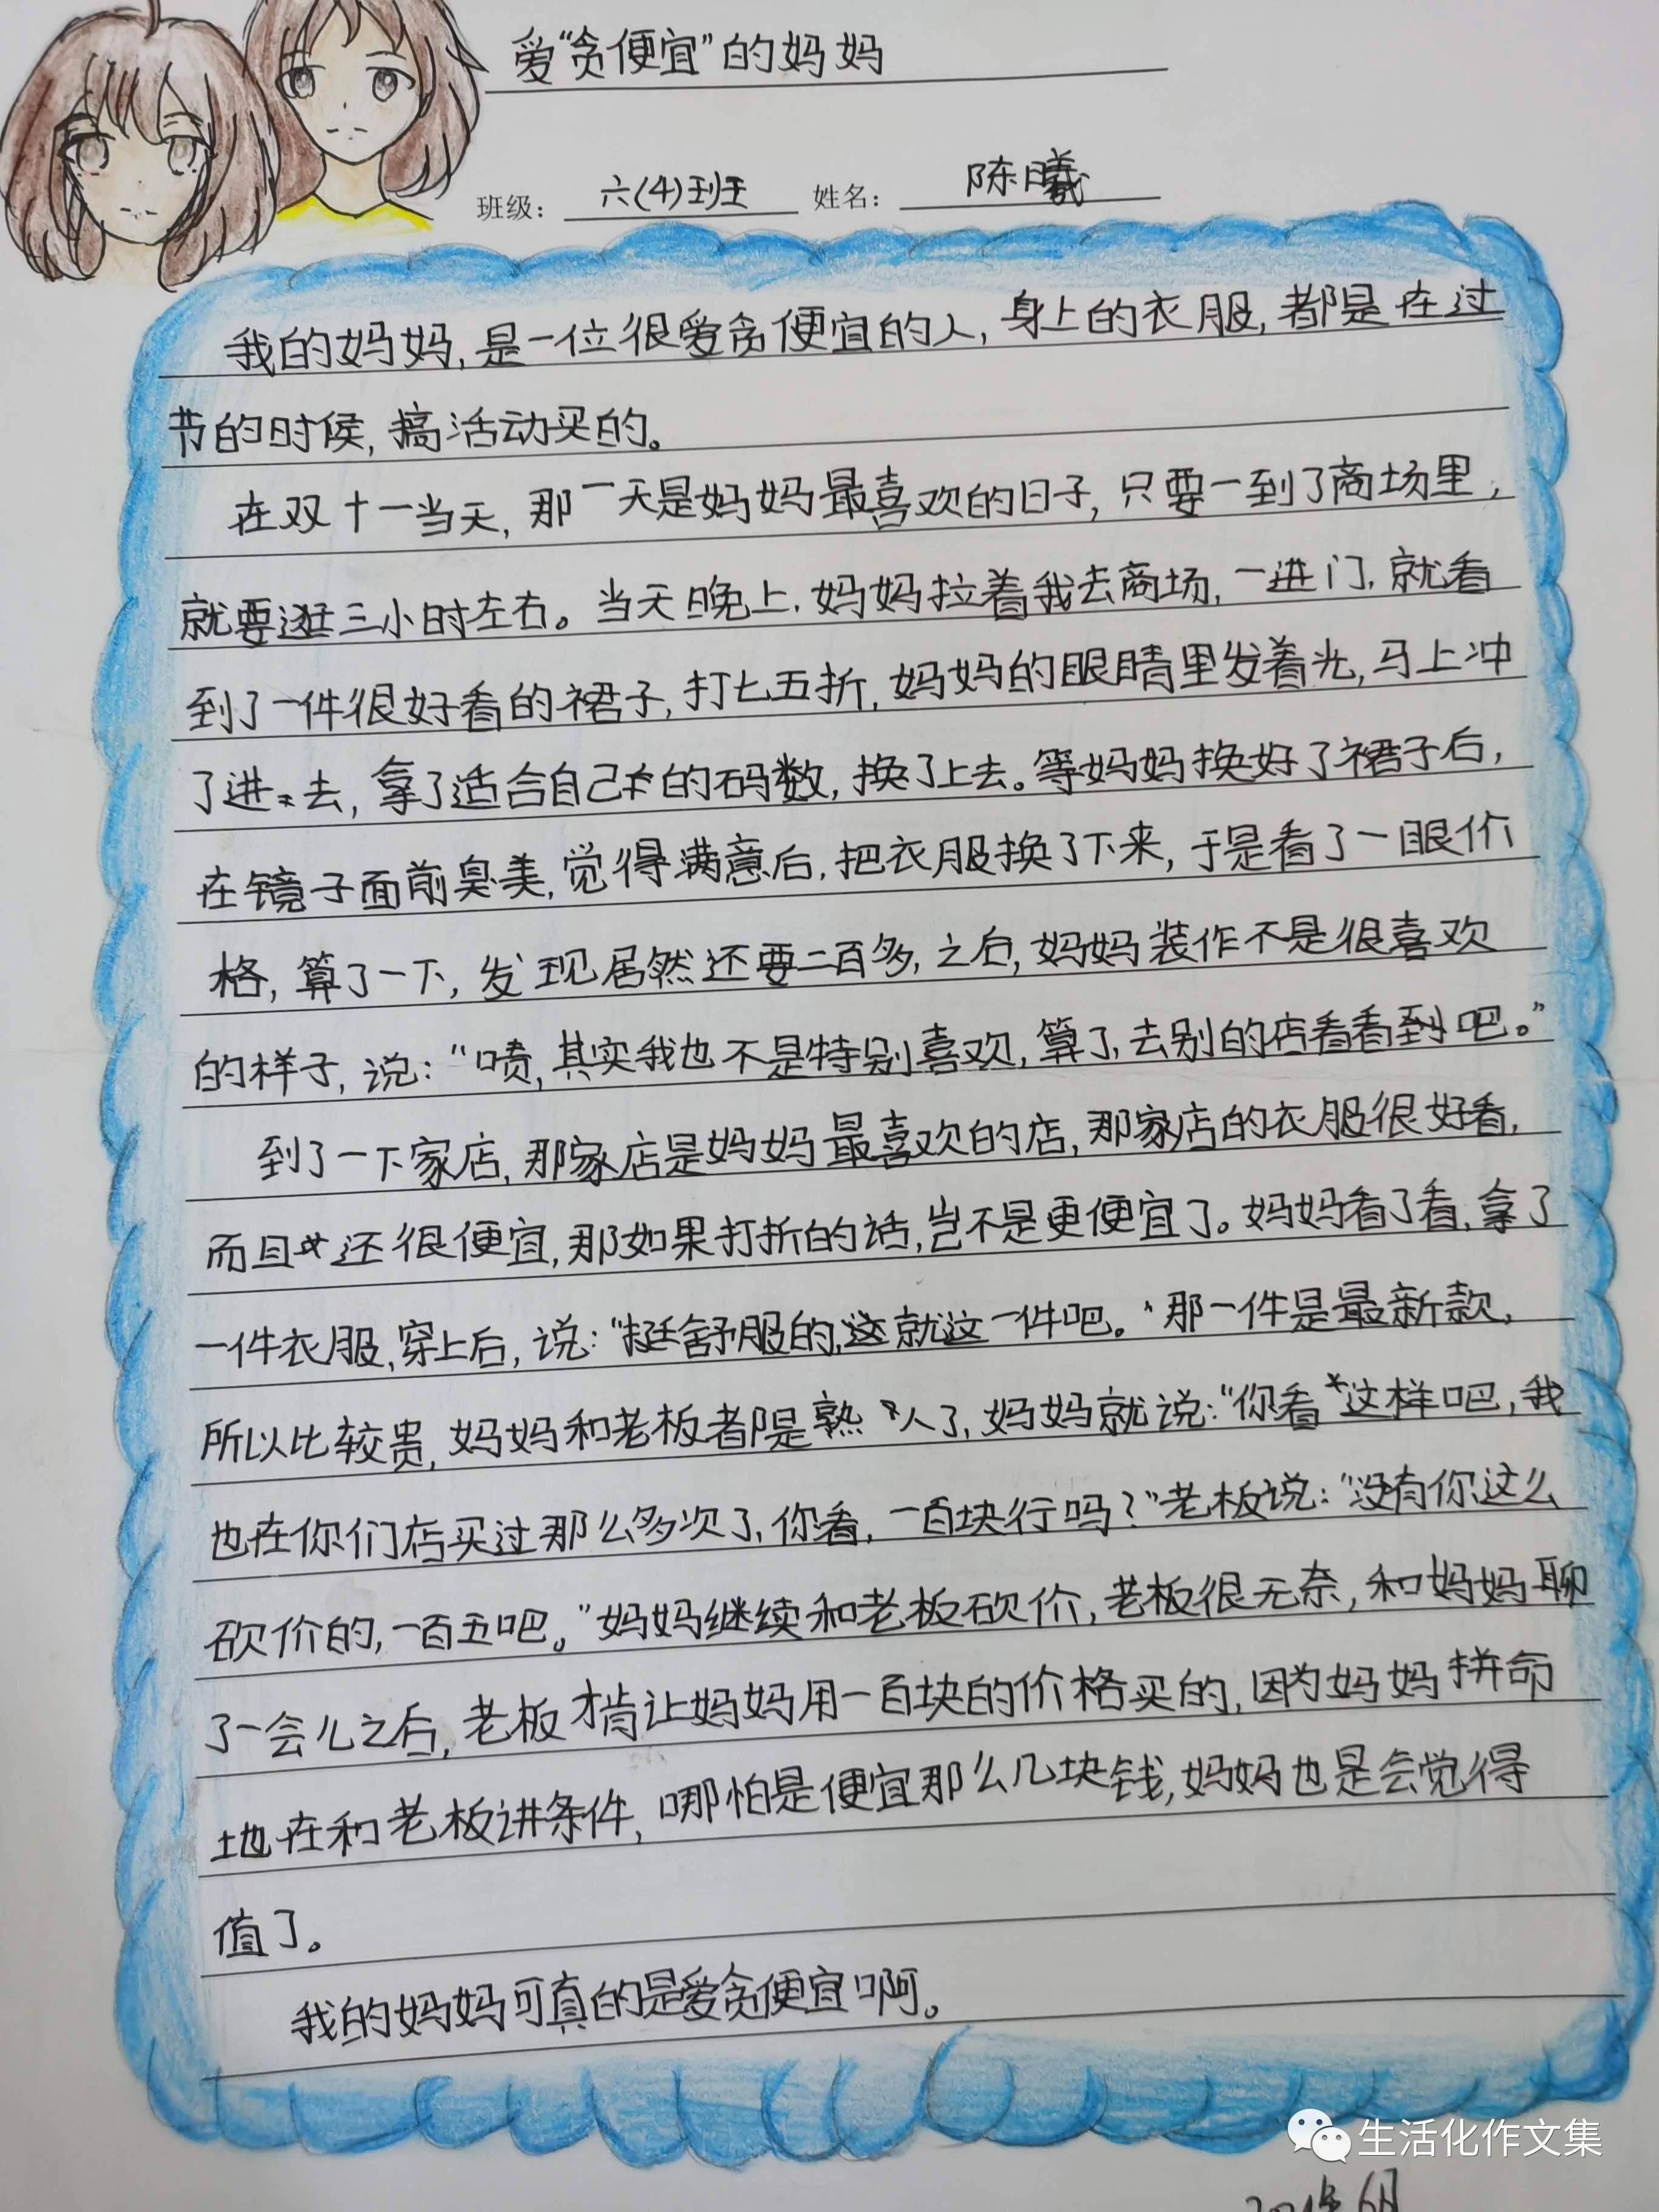 爱“贪便宜”的妈妈
班级： 六(4)班 姓名： 陈曦
我的妈妈,是一位很爱贪便宜的人,身上的衣服,都是在过
节的时候,搞活动买的。
在双十一当天,那一天是妈妈最喜欢的日子,只要一到了商场里,
就要逛三小时左右。当天晚上,妈妈拉着我去商场,一进门,就看
到了一件很好看的裙子,打七五折,妈妈的眼睛里发着光,马上冲
了进去,拿了适合自己的码数,换了上去。等妈妈换好了裙子后,
在镜子面前臭美,觉得满意后,把衣服换了下来,于是看了一眼价
格,算了一下,发现居然还要二百多,之后,妈妈装作不是很喜欢
的样子,说:“啧,其实我也不是特别喜欢,算了,去别的店看看到吧。”
到了一下家店,那家店是妈妈最喜欢的店,那家店的衣服很好看,
而且还很便宜,那如果打折的话,岂不是更便宜了。妈妈看了看,拿了
一件衣服,穿上后,说:“挺舒服的,这就这一件吧。”那一件是最新款,
所以比较贵,妈妈和老板都是熟人了,妈妈就说:“你看这样吧,我
也在你们店买过那么多次了,你看,一百块行吗?”老板说:“没有你这么
砍价的,一百五吧。”妈妈继续和老板砍价,老板很无奈,和妈妈聊
了一会儿之后,老板才肯让妈妈用一百块的价格买的,因为妈妈拼命
地在和老板讲条件,哪怕是便宜那么几块钱,妈妈也是会觉得
值了。
我的妈妈可真的是爱贪便宜啊。
生活化作文集